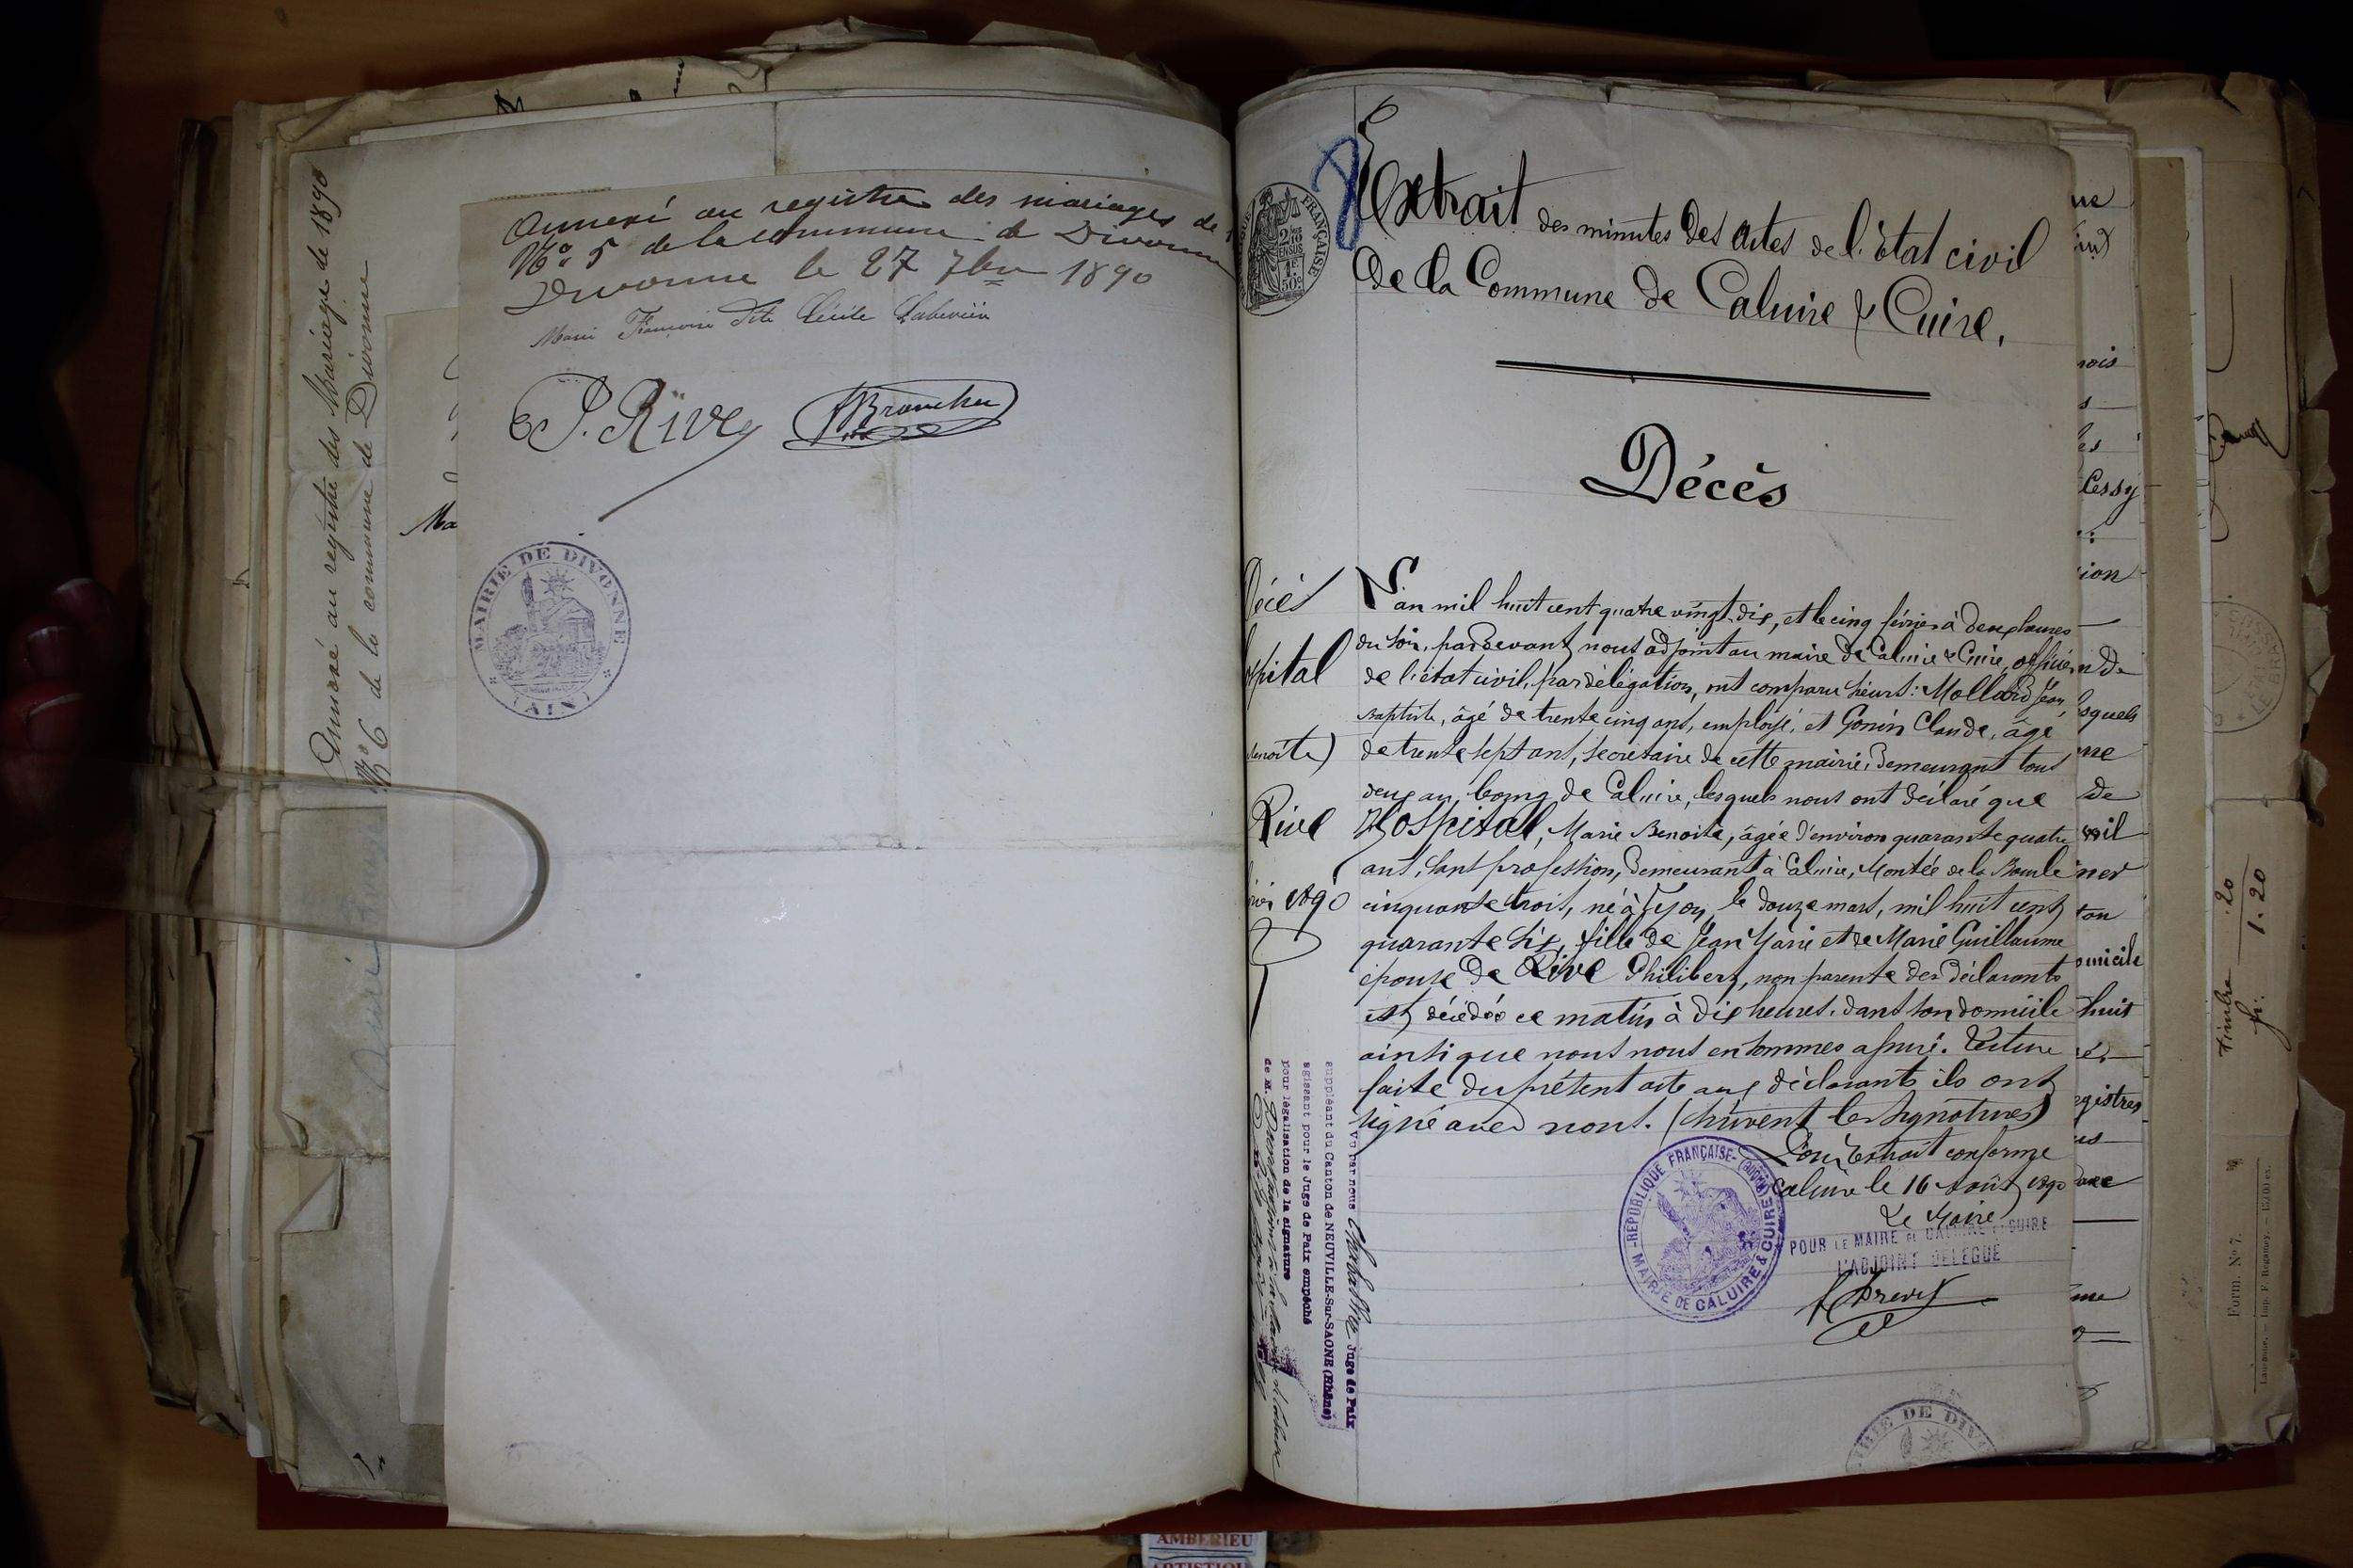 Annexé au registre des Mariages de 1890
N° 6 de la commune de Divonne
Ma
Annexé au registre des mariages de
N° 5 de la commune de Divonne
Divonne le 27 7bre 1890
Marie Françoise dite Cécile
P. Rive
MAIRIE DE DIVONNE
(AIN)
FRANÇAISE
2/10
EN SUS
1F
50c
Extrait des minutes des Actes de l'État civil
de la Commune de Caluire & Cuire.
Décès
Décès
L'an mil huit cent quatre vingt dix, et le cinq février à deux heures
du soir, pardevant nous adjoint au maire de Caluire & Cuire, officier
ospital
de l'état civil, par délégation, ont comparu sieurs: Mollard Jean
Baptiste, âgé de trente cinq ans, employé, et Gonin Claude, âgé
Benoîte)
de trente sept ans, secrétaire de cette mairie, demeurant tous
deux au bourg de Caluire, lesquels nous ont déclaré que
Rive
Hospital, Marie Benoite, âgée d'environ quarante quatre
ans, sans profession, demeurant à Caluire, Montée de la Boucle
1890
cinquante trois, né à Lyon, le douze mars, mil huit cent
quarante six, fille de Jean Marie et de Marie Guillaume
épouse de Rive Philibert, non parente des déclarants
est décédée ce matin à dix heures, dans son domicile
ainsi que nous nous en sommes assuré. Lecture
faite du présent acte aux déclarants ils ont
signé avec nous. (suivent les signatures)
Pour Extrait conforme
Caluire le 16 Août 1890
Le Maire
POUR LE MAIRE DE CALUIRE ET CUIRE
L'ADJOINT DÉLÉGUÉ
RÉPUBLIQUE FRANÇAISE - (RHÔNE)
MAIRIE DE CALUIRE & CUIRE
Vu par nous Juge de Paix
suppléant du Canton de NEUVILLE-Sur-SAONE (Rhône)
agissant pour le Juge de Paix empêché
pour légalisation de la signature
de M.
MAIRIE DE DIV
Cessy
ion
esquels
de
mil
omicile
huit
egistres
Timbre .20
fr. 1.20
Form. N° 7.
AMBERIEU
ARTISTIQU